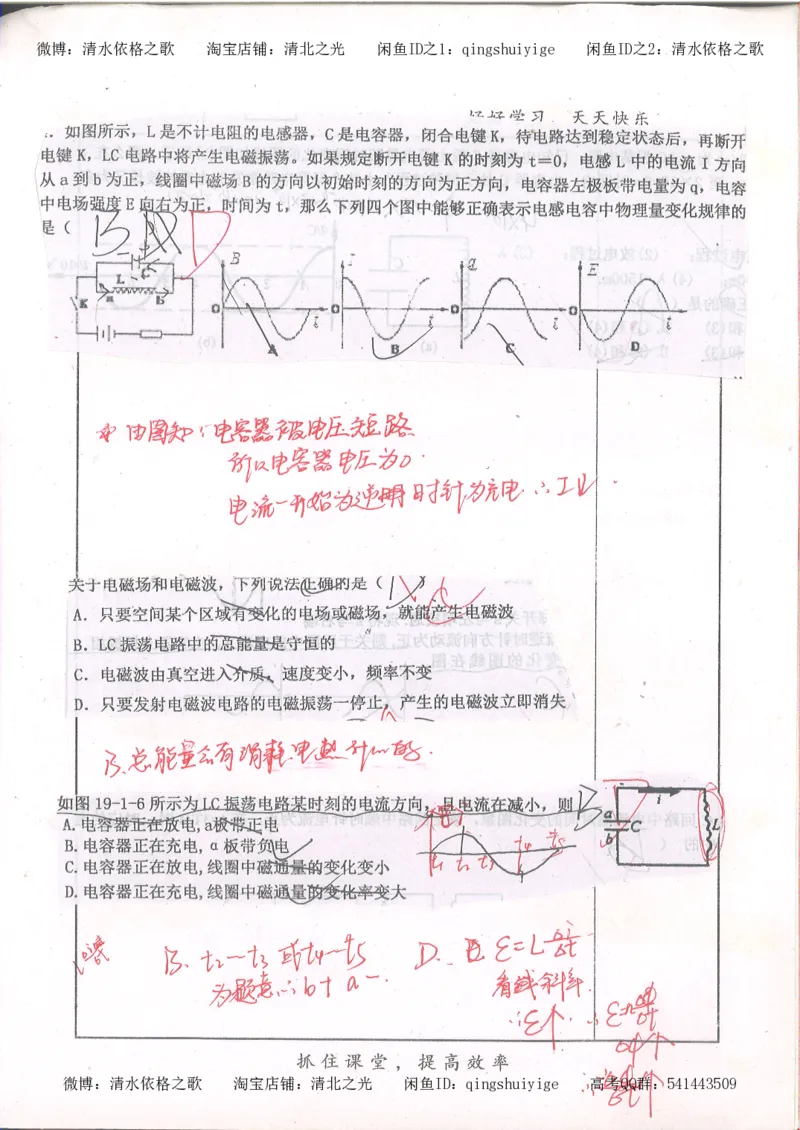 微博：清水依格之歌 淘宝店铺：清北之光 闲鱼ID之1：qingshuiyige 闲鱼ID之2：清水依格之歌
好好学习，天天快乐
如图所示，L是不计电阻的电感器，C是电容器，闭合电键K，待电路达到稳定状态后，再断开
电键K，LC电路中将产生电磁振荡。如果规定断开电键K的时刻为t＝0，电感L中的电流I方向
从a到b为正，线圈中磁场B的方向以初始时刻的方向为正方向，电容器左极板带电量为q，电容
中电场强度E向右为正，时间为t，那么下列四个图中能够正确表示电感电容中物理量变化规律的
是（ ）
B D
L C a b K
B 0 t A
I 0 t B
q 0 t C
E 0 t D
由图知：电容器被电压短路
所以电容器电压为0.
电流一开始为逆时针为充电
关于电磁场和电磁波，下列说法正确的是（ ）
C
A．只要空间某个区域有变化的电场或磁场，就能产生电磁波
B．LC振荡电路中的总能量是守恒的
C．电磁波由真空进入介质，速度变小，频率不变
D．只要发射电磁波电路的电磁振荡一停止，产生的电磁波立即消失
B.总能量会有消耗.电热
如图19-1-6所示为LC振荡电路某时刻的电流方向，且电流在减小，则 B
A.电容器正在放电,a极带正电
B.电容器正在充电,α板带负电
C.电容器正在放电,线圈中磁通量的变化变小
D.电容器正在充电,线圈中磁通量的变化率变大
i a b C L
t₁ t₂ t₃ t₄ t₅
B. t₂~t₃ 或 t₄~t₅
为题意∴b+ a-.
D.
看线斜率.
抓住课堂，提高效率
微博：清水依格之歌 淘宝店铺：清北之光 闲鱼ID：qingshuiyige 高考QQ群：541443509